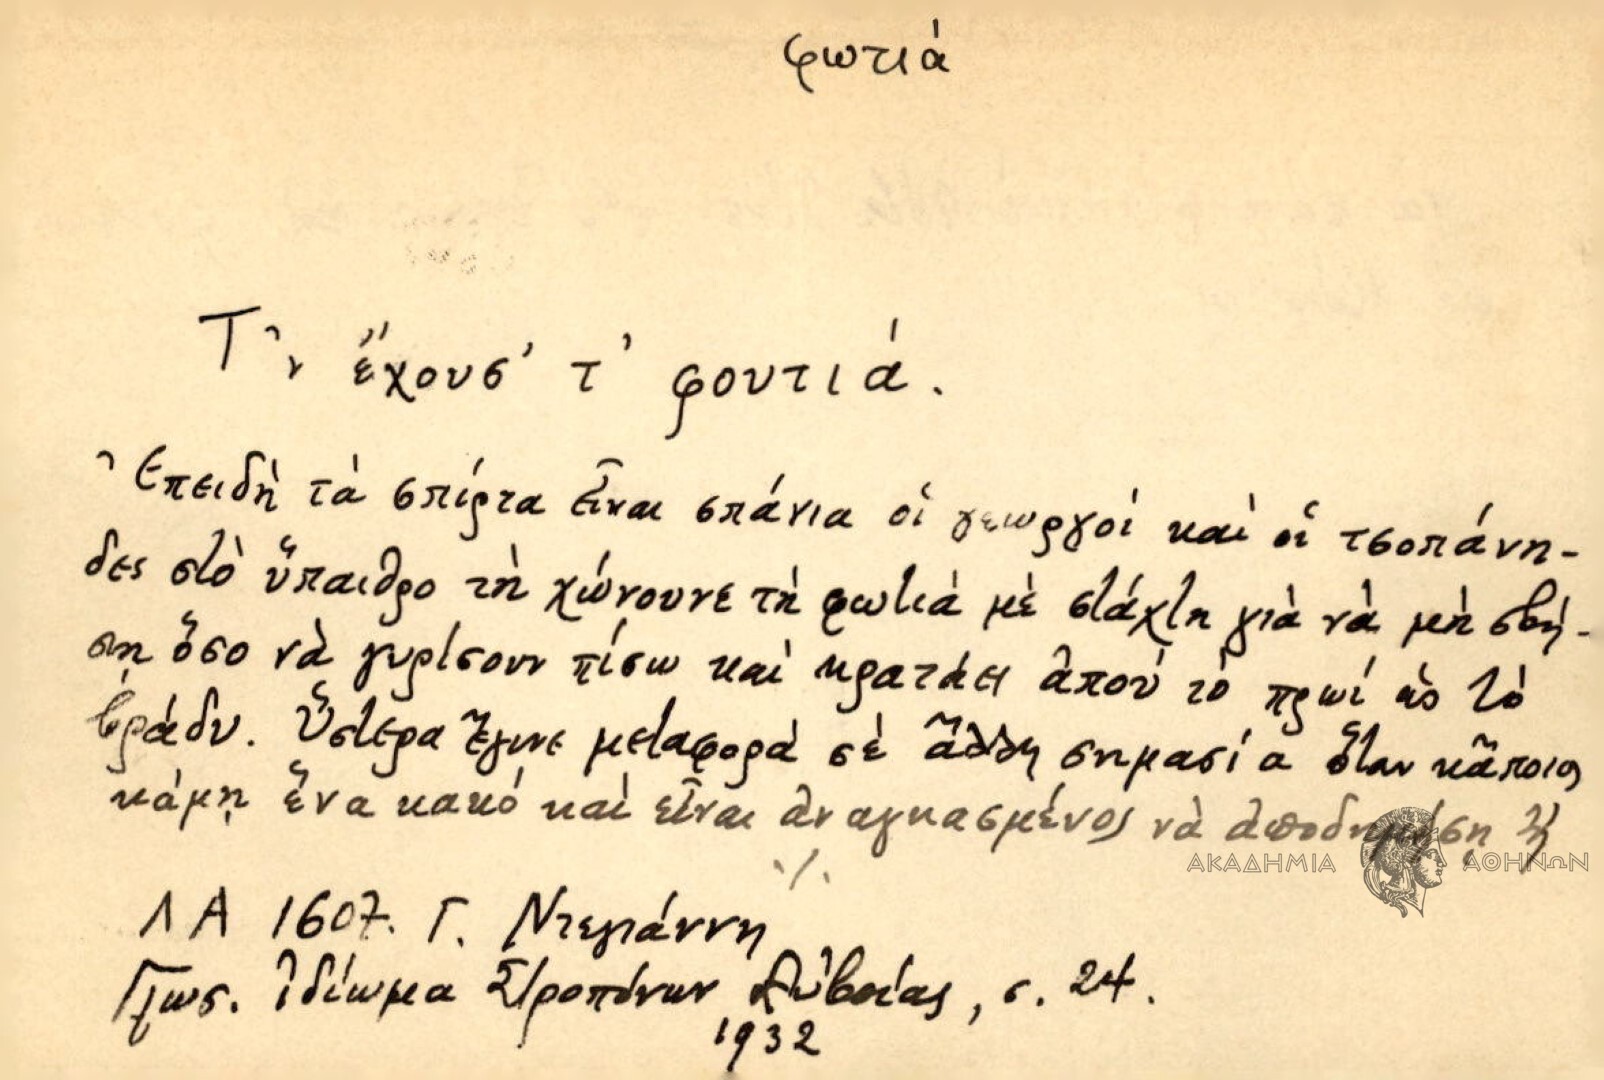 φωτιά
Τ᾿ν ἔχουσ᾿ τ᾿ φουτιά.
Ἐπειδὴ τὰ σπίρτα εἶναι σπάνια οἱ γεωργοί καὶ οἱ τσοπάνη-
δες στὸ ὕπαιθρο τὴ χώνουνε τὴ φωτιά μὲ στάχτη γιὰ νὰ μὴ σβή-
ση ὅσο νὰ γυρίσουν πίσω καὶ κρατάει ἀπού τὸ πρωί ὡς τὸ
βράδυ. Ὕστερα ἔγινε μεταφορά σὲ ἄλλη σημασία ὅταν κᾶποιος
κάμῃ ἕνα κακό καὶ εἶναι ἀναγκασμένος νὰ ἀποδημήσῃ ἢ
./.
ΑΚΑΔΗΜΙΑ ΑΘΗΝΩΝ
ΛΑ 1607. Γ. Ντεγιάννη
Γλωσ. ἰδίωμα Στροπώνων Εὐβοίας, σ. 24.
1932